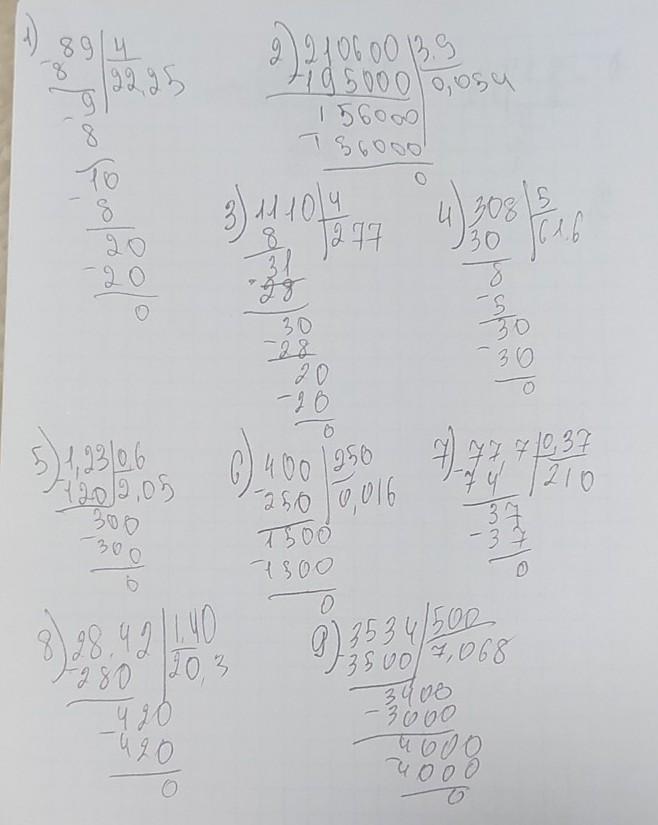 1) 89 | 4
-8 | 22,25
9
-8
10
-8
20
-20
0
2) 210600 | 3,9
-195000 | 0,054
156000
-156000
0
3) 1110 | 4
8 | 277
31
-28
30
-28
20
-20
0
4) 308 | 5
30 | 61,6
8
-5
30
-30
0
5) 1,23 | 0,6
-120 | 2,05
300
-300
0
6) 400 | 250
-250 | 0,016
1500
-1500
0
7) 77 7 | 0,37
-74 | 210
37
-37
0
8) 28,42 | 1,40
-280 | 20,3
420
-420
0
9) 3534 | 500
-3500 | 7,068
3400
-3000
4000
-4000
0